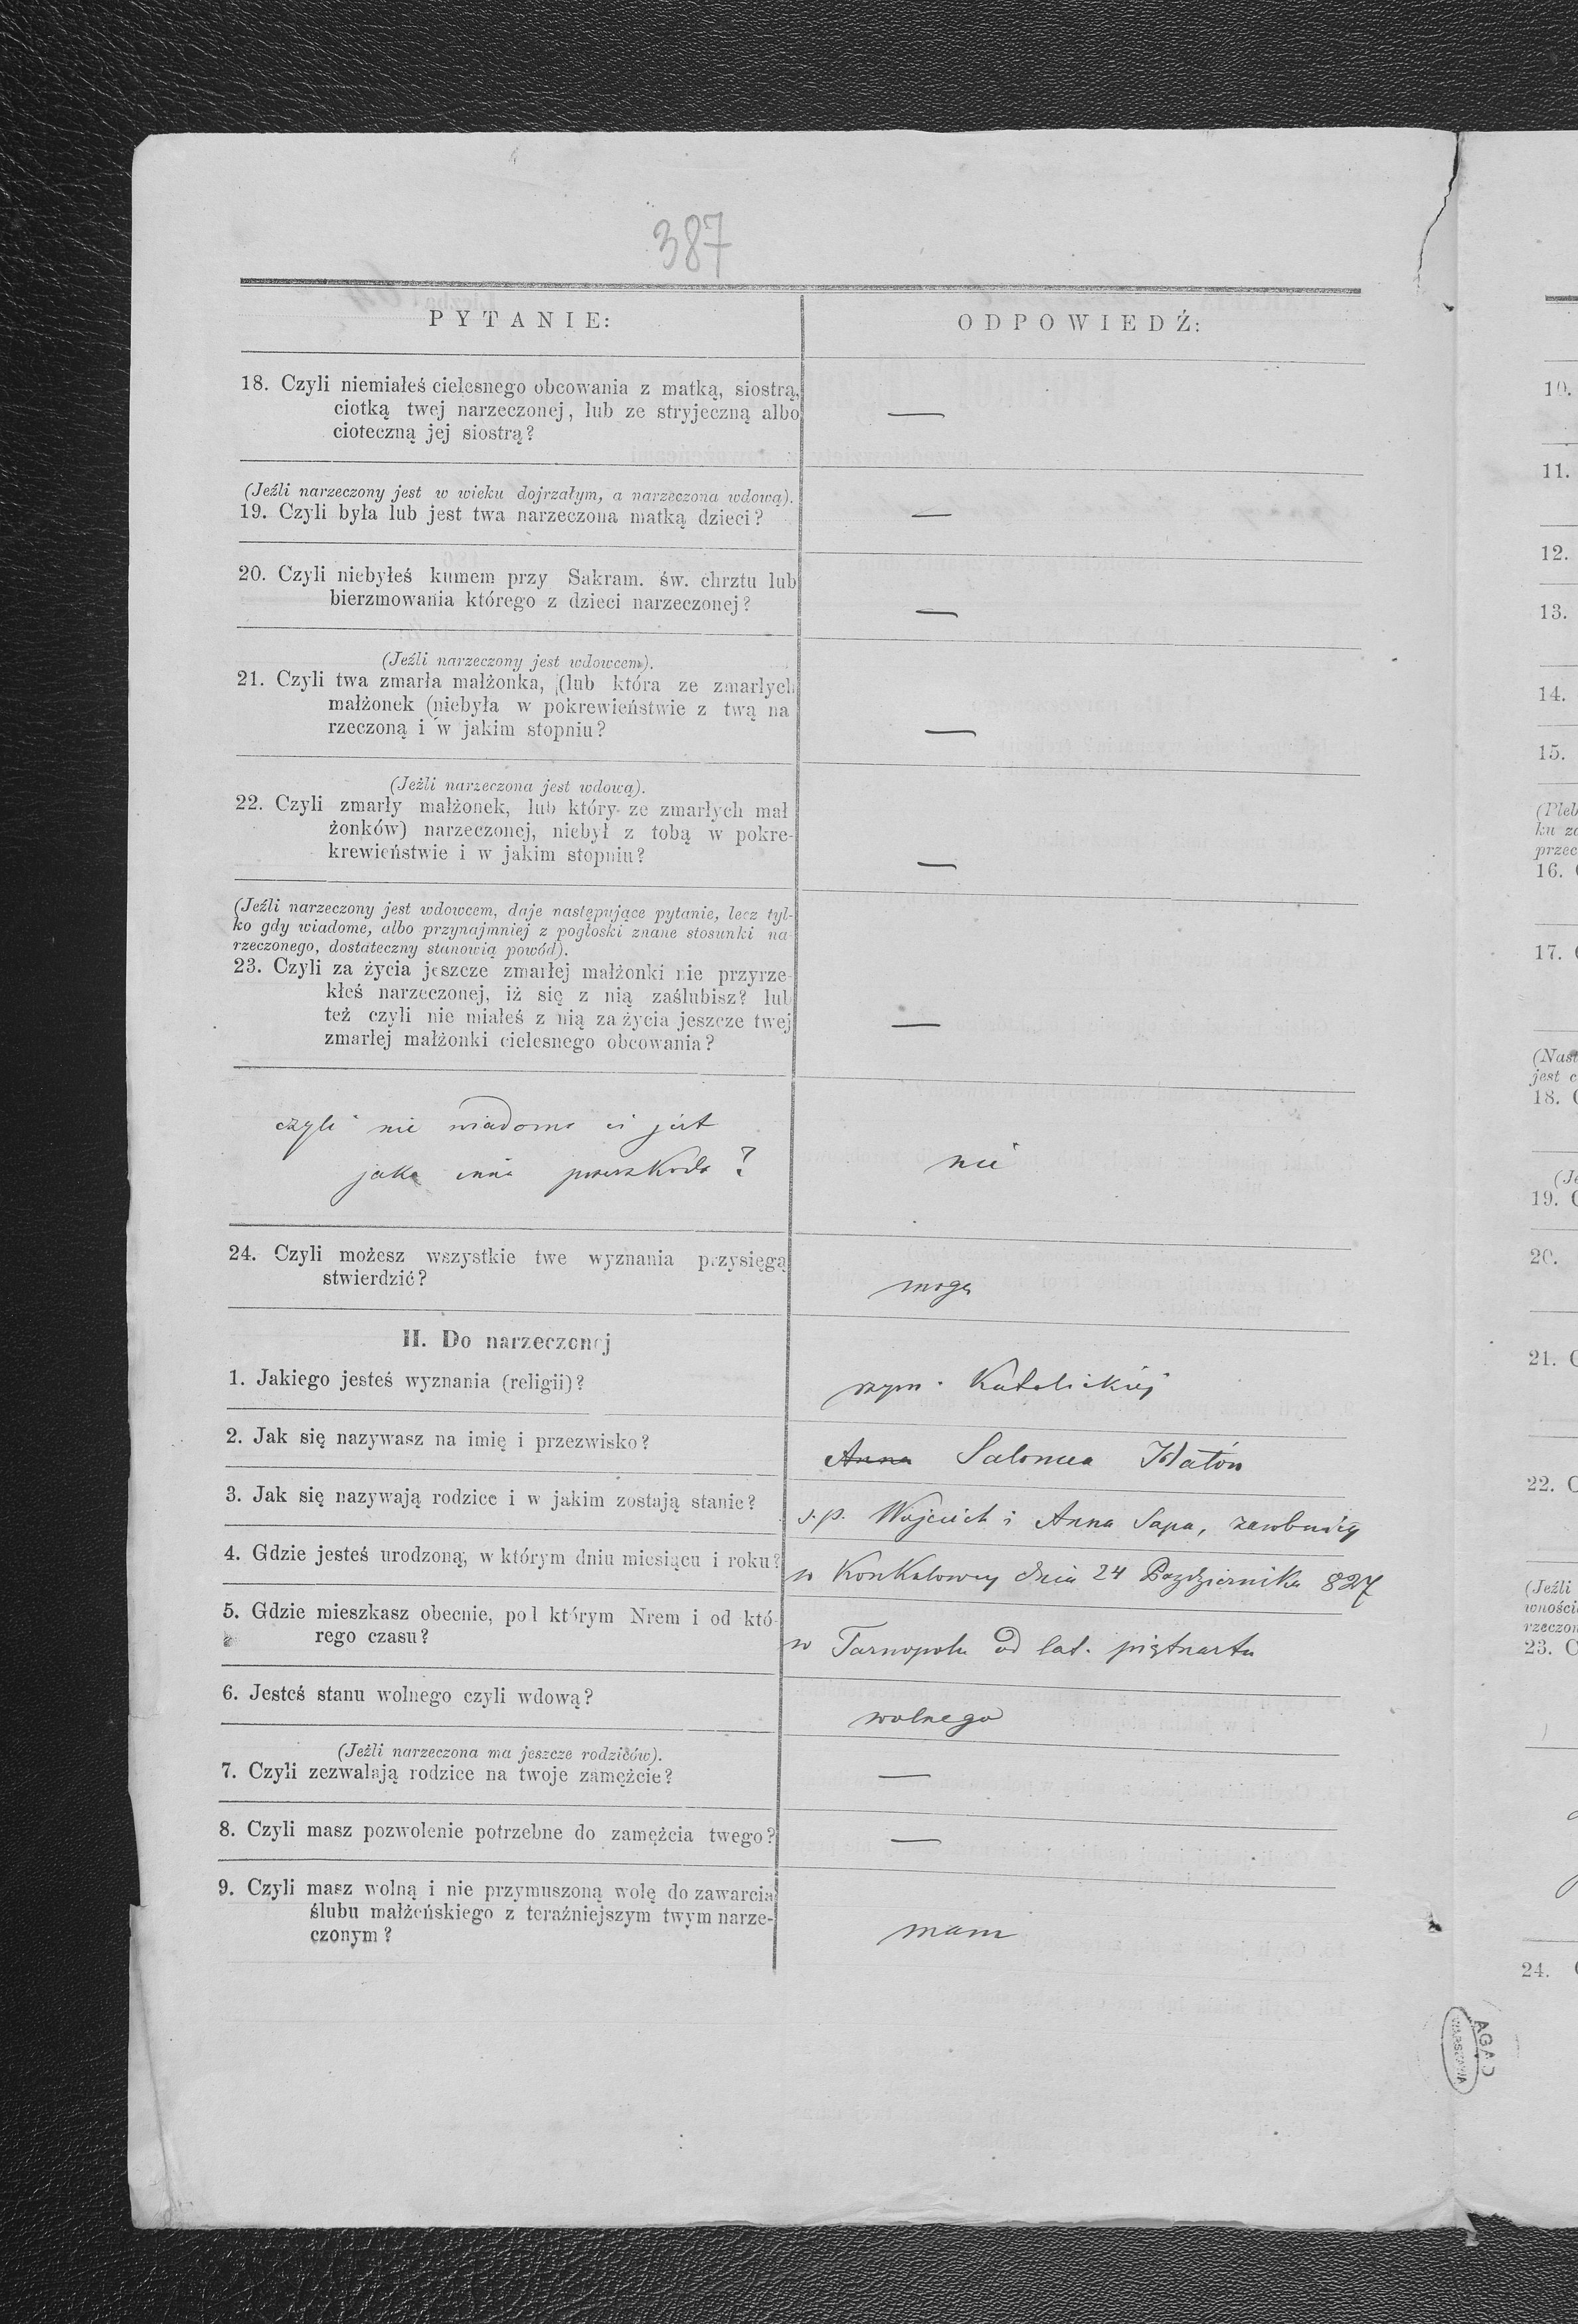 387
PYTANIE:
ODPOWIEDŹ:
18. Czyli niemiałeś cielesnego obcowania z matką, siostrą,
ciotką twej narzeczonej, lub ze stryjeczną albo
cioteczną jej siostrą?
—
(Jeźli narzeczony jest w wieku dojrzałym, a narzeczona wdową).
19. Czyli była lub jest twa narzeczona matką dzieci?
—
20. Czyli niebyłeś kumem przy Sakram. św. chrztu lub
bierzmowania którego z dzieci narzeczonej?
—
(Jeźli narzeczony jest wdowcem).
21. Czyli twa zmarła małżonka, (lub która ze zmarłych
małżonek (niebyła w pokrewieństwie z twą na
rzeczoną i w jakim stopniu?
—
(Jeźli narzeczona jest wdową).
22. Czyli zmarły małżonek, lub który ze zmarłych mał
żonków) narzeczonej, niebył z tobą w pokre-
krewieństwie i w jakim stopniu?
—
(Jeźli narzeczony jest wdowcem, daje następujące pytanie, lecz tyl-
ko gdy wiadome, albo przynajmniej z pogłoski znane stosunki na-
rzeczonego, dostateczny stanowią powód).
23. Czyli za życia jeszcze zmarłej małżonki nie przyrze-
kłeś narzeczonej, iż się z nią zaślubisz? lub
też czyli nie miałeś z nią za życia jeszcze twej
zmarłej małżonki cielesnego obcowania?
—
czyli nie wiadomo ci jest
jaka inna przeszkoda?
nie
24. Czyli możesz wszystkie twe wyznania przysięgą
stwierdzić?
mogę
II. Do narzeczonej
1. Jakiego jesteś wyznania (religii)?
rzym. Katolickiej
2. Jak się nazywasz na imię i przezwisko?
Anna Salomea
3. Jak się nazywają rodzice i w jakim zostają stanie?
s.p. Wojciech i Anna Sapa,
4. Gdzie jesteś urodzoną, w którym dniu miesiącu i roku?
w dnia 24 Października 827
5. Gdzie mieszkasz obecnie, pod którym Nrem i od któ-
rego czasu?
w Tarnopolu od lat. piętnastu
6. Jesteś stanu wolnego czyli wdową?
wolnego
(Jeźli narzeczona ma jeszcze rodziców).
7. Czyli zezwalają rodzice na twoje zamęźcie?
—
8. Czyli masz pozwolenie potrzebne do zamężcia twego?
—
9. Czyli masz wolną i nie przymuszoną wolę do zawarcia
ślubu małżeńskiego z teraźniejszym twym narze-
czonym?
mam
10.
11.
12.
13.
14.
15.
(Pleb
ku za
przec
16.
17.
(Nast
jest c
18.
(Je
19.
20.
21.
22.
(Jeźli
wności
rzeczon
23.
24.
AGAD
WARSZAWA